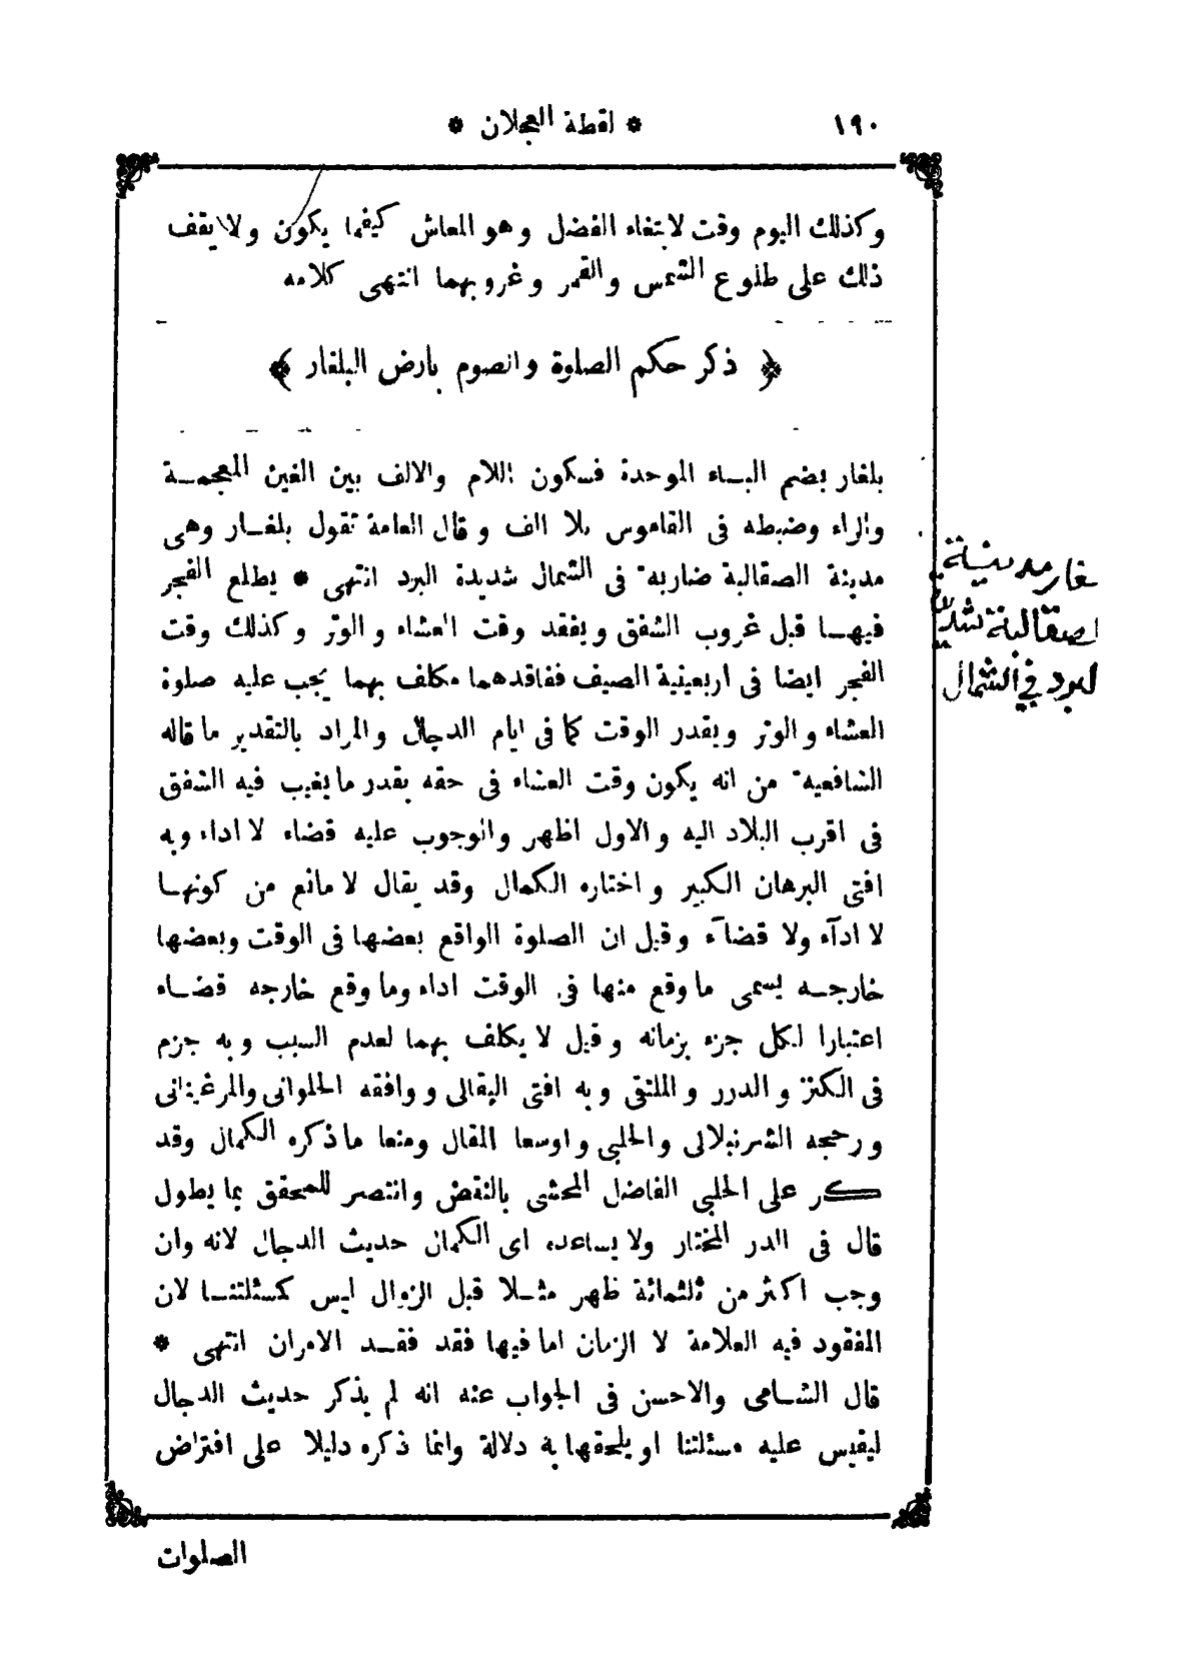 ١٩٠
* لقطة العجلان *
وكذلك اليوم وقت لابتغاء الفضل وهو المعاش كيفما يكون ولا يقف
ذلك على طلوع الشمس والقمر وغروبهما انتهى كلامه
﴿ ذكر حكم الصلوة والصوم بارض البلغار ﴾
بلغار بضم البـاء الموحدة فسكون اللام والالف بين الغين المعجمـة
والراء وضبطه فى القاموس بلا الف وقال العامة تقول بلغـار وهى
مدينة الصقالبة ضاربة فى الشمال شديدة البرد انتهى * يطلع الفجر
فيهـا قبل غروب الشفق ويفقد وقت العشاء والوتر وكذلك وقت
الفجر ايضا فى اربعينية الصيف ففاقدهما مكلف بهما يجب عليه صلوة
العشاء والوتر ويقدر الوقت كما فى ايام الدجال والمراد بالتقدير ما قاله
الشافعية من انه يكون وقت العشاء فى حقه بقدر ما يغيب فيه الشفق
فى اقرب البلاد اليه والاول اظهر والوجوب عليه قضاء لا اداء وبه
افتى البرهان الكبير واختاره الكمال وقد يقال لا مانع من كونهـا
لا ادآء ولا قضآء وقيل ان الصلوة الواقع بعضها فى الوقت وبعضها
خارجـه يسمى ما وقع منها فى الوقت اداء وما وقع خارجه قضـاء
اعتبارا لكل جزء بزمانه وقيل لا يكلف بهما لعدم السبب وبه جزم
فى الكنز والدرر والملتقى وبه افتى البقالى ووافقه الحلوانى والمرغينانى
ورجحه الشرنبلالى والحلبى واوسعا المقال ومنعا ما ذكره الكمال وقد
كر على الحلبى الفاضل المحشى بالنقض وانتصر للمحقق بما يطول
قال فى الدر المختار ولا يساعده اى الكمال حديث الدجال لانه وان
وجب اكثر من ثلثمائة ظهر مثـلا قبل الزوال ليس كمسئلتنـا لان
المفقود فيه العلامة لا الزمان اما فيها فقد فقـد الامران انتهى *
قال الشـامى والاحسن فى الجواب عنه انه لم يذكر حديث الدجال
ليقيس عليه مسئلتنا او يلحقها به دلالة وانما ذكره دليلا على افتراض
الصلوات
ـغار مدينة
لصقالبة
لبرد في الشمال